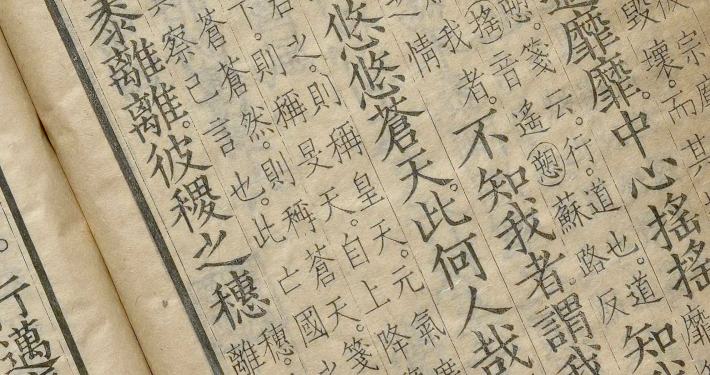 宗廟
毀壞。而其
靡靡。中心搖搖
箋云。行。道也。道
搖音遙愬蘇路反
知
我者。不知我者謂我
之情
悠悠蒼天。此何人哉
君之。則稱皇天。元氣
下。則稱旻天。自上降
蒼蒼然。則稱蒼天。箋
察己言也。此亡國
黍離離。彼稷之穗
穗。
離
行邁